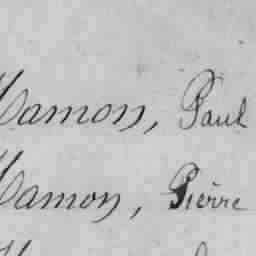 Hamon, Paul
Hamon, Pierre